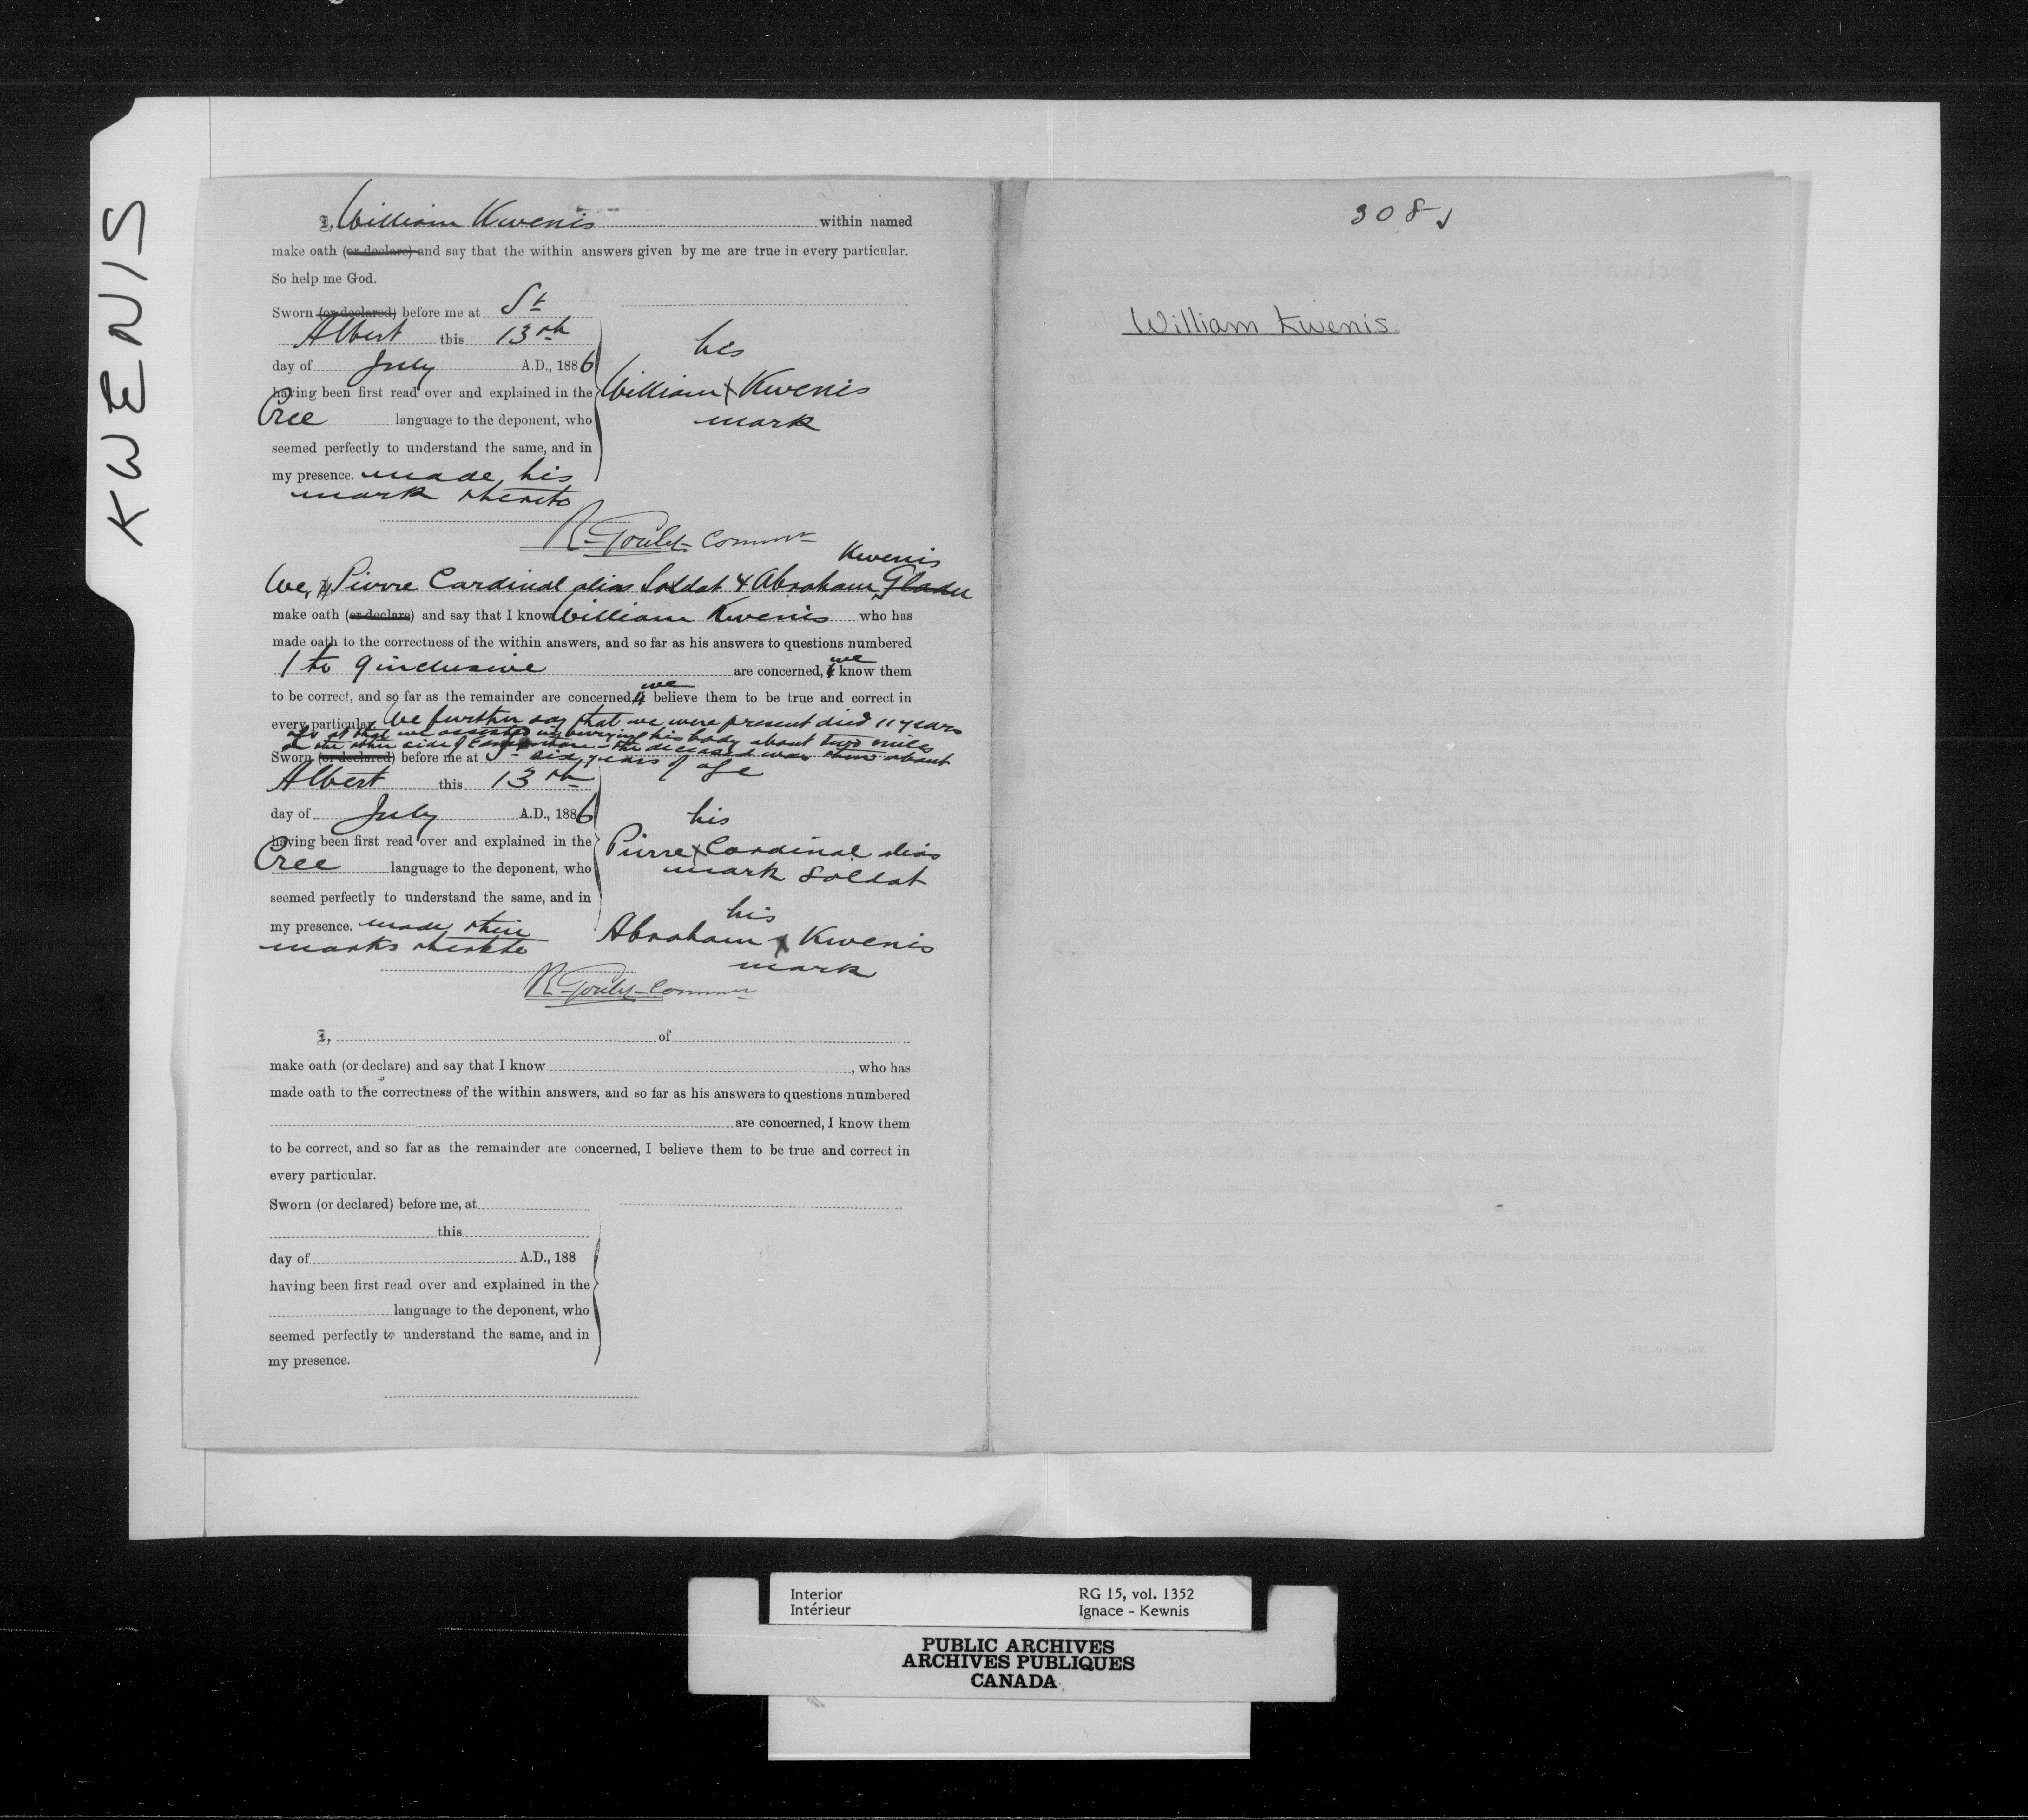 KWENIS
I, William Kwenis within named
make oath (or declare) and say that the within answers given by me are true in every particular.
So help me God.
Sworn (or declared) before me at St
Albert this 13th
day of July A.D., 1886
having been first read over and explained in the
Cree language to the deponent, who
seemed perfectly to understand the same, and in
my presence. made his
mark thereto
his
William X Kwenis
mark
R. Goulet Commr
Kwenis
We, Pierre Cardinal alias Soldat & Abraham Gladu
make oath (or declare) and say that I know William Kwenis who has
made oath to the correctness of the within answers, and so far as his answers to questions numbered
1 to 9 inclusive are concerned, we know them
to be correct, and so far as the remainder are concerned, we believe them to be true and correct in
every particular. We further say that we were present died 11 years
ago at that we assisted in burying his body about two miles
on the other side of the deceased was then about
six years of age
Sworn (or declared) before me at St
Albert this 13th
day of July A.D., 1886
having been first read over and explained in the
Cree language to the deponent, who
seemed perfectly to understand the same, and in
my presence. made their
marks thereto
his
Pierre X Cardinal alias
mark Soldat
his
Abraham X Kwenis
mark
R. Goulet Commr
I, of
make oath (or declare) and say that I know , who has
made oath to the correctness of the within answers, and so far as his answers to questions numbered
are concerned, I know them
to be correct, and so far as the remainder are concerned, I believe them to be true and correct in
every particular.
Sworn (or declared) before me, at
this
day of A.D., 188
having been first read over and explained in the
language to the deponent, who
seemed perfectly to understand the same, and in
my presence.
308
William Kwenis
Interior RG 15, vol. 1352
Intérieur Ignace - Kewnis
PUBLIC ARCHIVES
ARCHIVES PUBLIQUES
CANADA